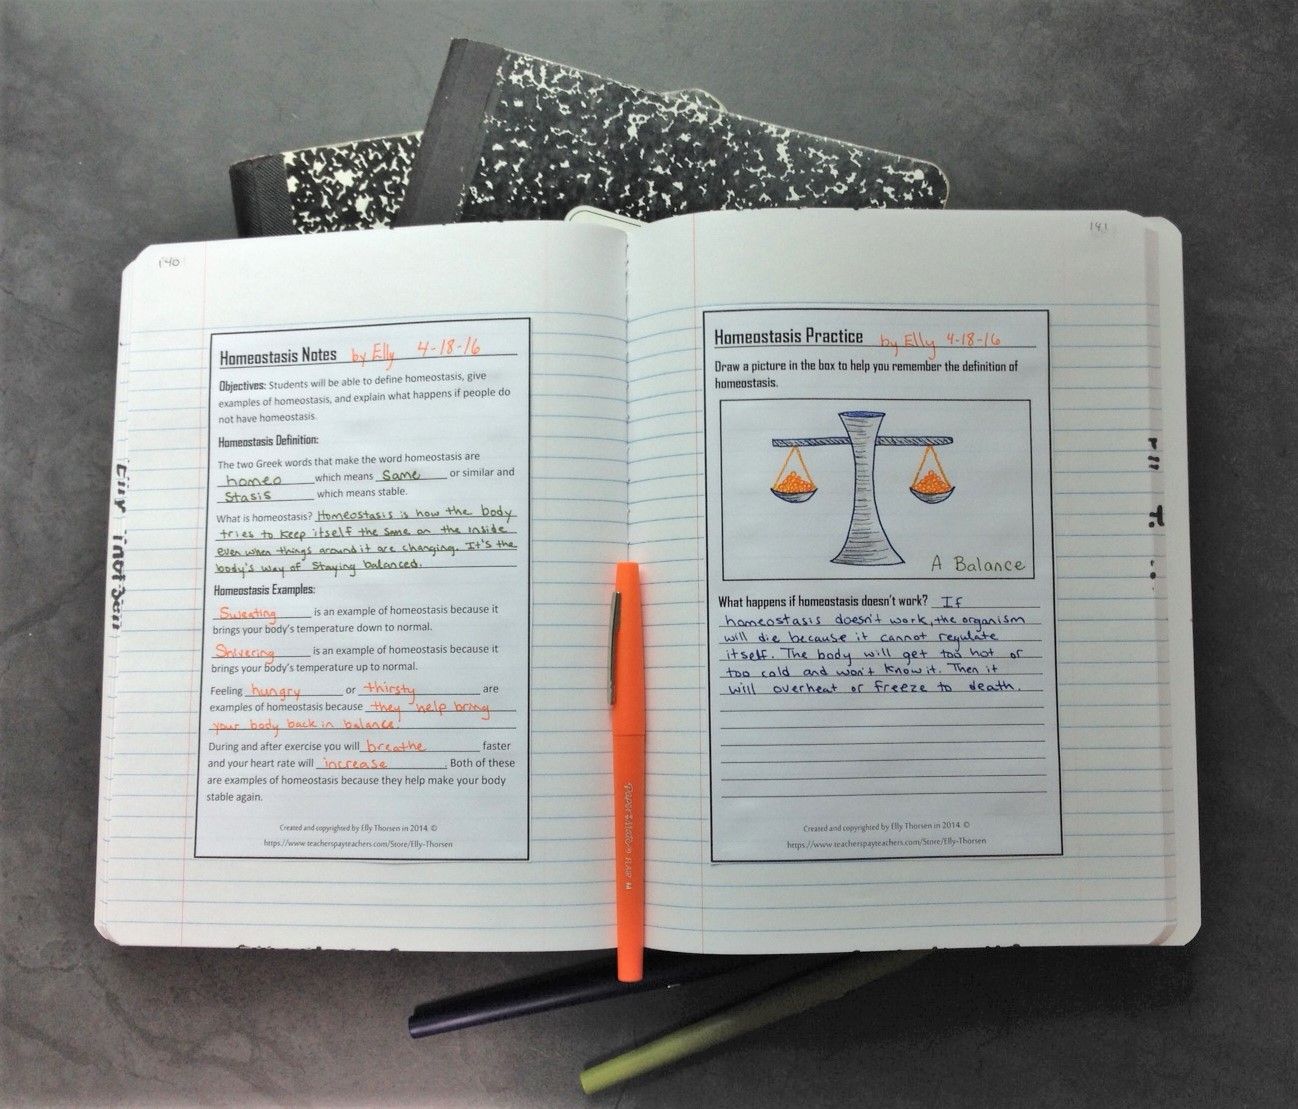 140
Homeostasis Notes by Elly 4-18-16
Objectives: Students will be able to define homeostasis, give
examples of homeostasis, and explain what happens if people do
not have homeostasis.
Homeostasis Definition:
The two Greek words that make the word homeostasis are
homeo which means same or similar and
stasis which means stable.
What is homeostasis? Homeostasis is how the body
tries to keep itself the same on the inside
even when things around it are changing. It's the
body's way of staying balanced.
Homeostasis Examples:
Sweating is an example of homeostasis because it
brings your body's temperature down to normal.
Shivering is an example of homeostasis because it
brings your body's temperature up to normal.
Feeling hungry or thirsty are
examples of homeostasis because they help bring
your body back in balance.
During and after exercise you will breathe faster
and your heart rate will increase. Both of these
are examples of homeostasis because they help make your body
stable again.
Created and copyrighted by Elly Thorsen in 2014 ©
https://www.teacherspayteachers.com/Store/Elly-Thorsen
141
Homeostasis Practice by Elly 4-18-16
Draw a picture in the box to help you remember the definition of
homeostasis.
A Balance
What happens if homeostasis doesn't work? If
homeostasis doesn't work, the organism
will die because it cannot regulate
itself. The body will get too hot or
too cold and won't know it. Then it
will overheat or freeze to death.
Created and copyrighted by Elly Thorsen in 2014 ©
https://www.teacherspayteachers.com/Store/Elly-Thorsen
Elly Thorsen